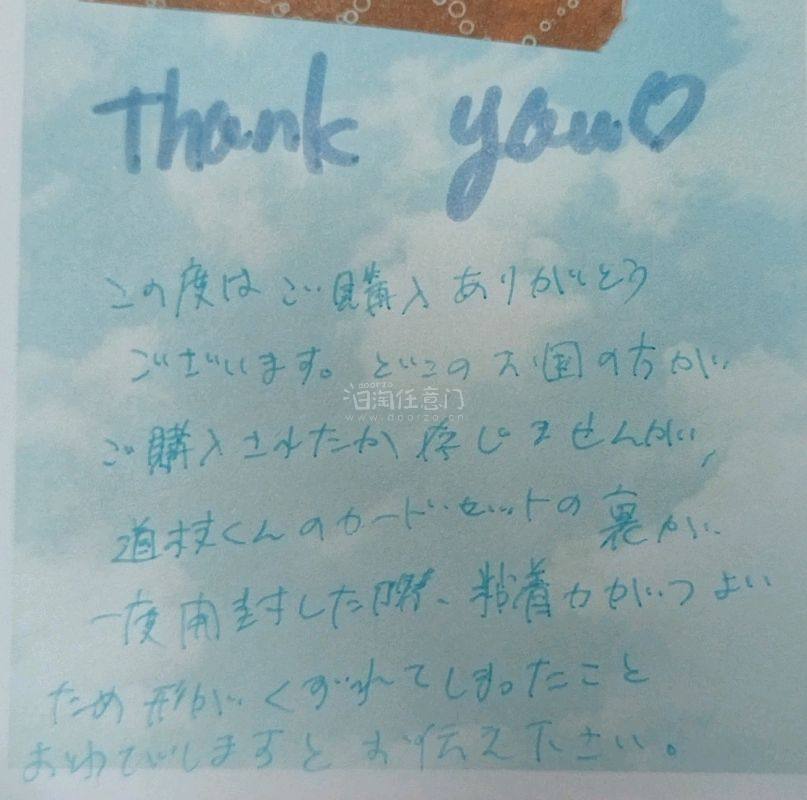 Thank you♡
この度はご購入ありがとう
ございます。どこのお国の方が
doorzo
汩淘任意门
www.doorzo.cn
ご購入されたか存じませんが、
道枝くんのカードセットの裏が、
一度開封した際、粘着力がつよい
ため形がくずれてしまったこと
おわびしますとお伝え下さい。